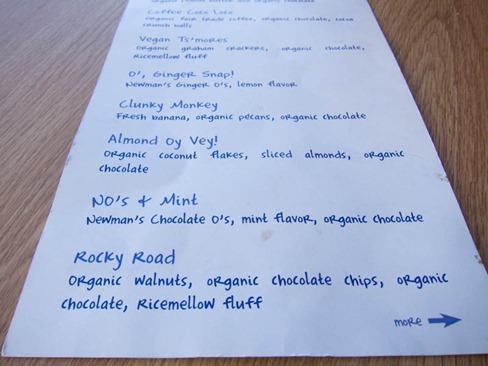 Coffee Coco Loco
organic fair trade coffee, organic chocolate, cocoa
crunch balls
Vegan Ts'mores
organic graham crackers, organic chocolate,
Ricemellow fluff
O', Ginger Snap!
Newman's Ginger O's, lemon flavor
Clunky Monkey
Fresh banana, organic pecans, organic chocolate
Almond Oy Vey!
organic coconut flakes, sliced almonds, organic
chocolate
NO's & Mint
Newman's Chocolate O's, mint flavor, organic chocolate
Rocky Road
organic walnuts, organic chocolate chips, organic
chocolate, Ricemellow fluff
more